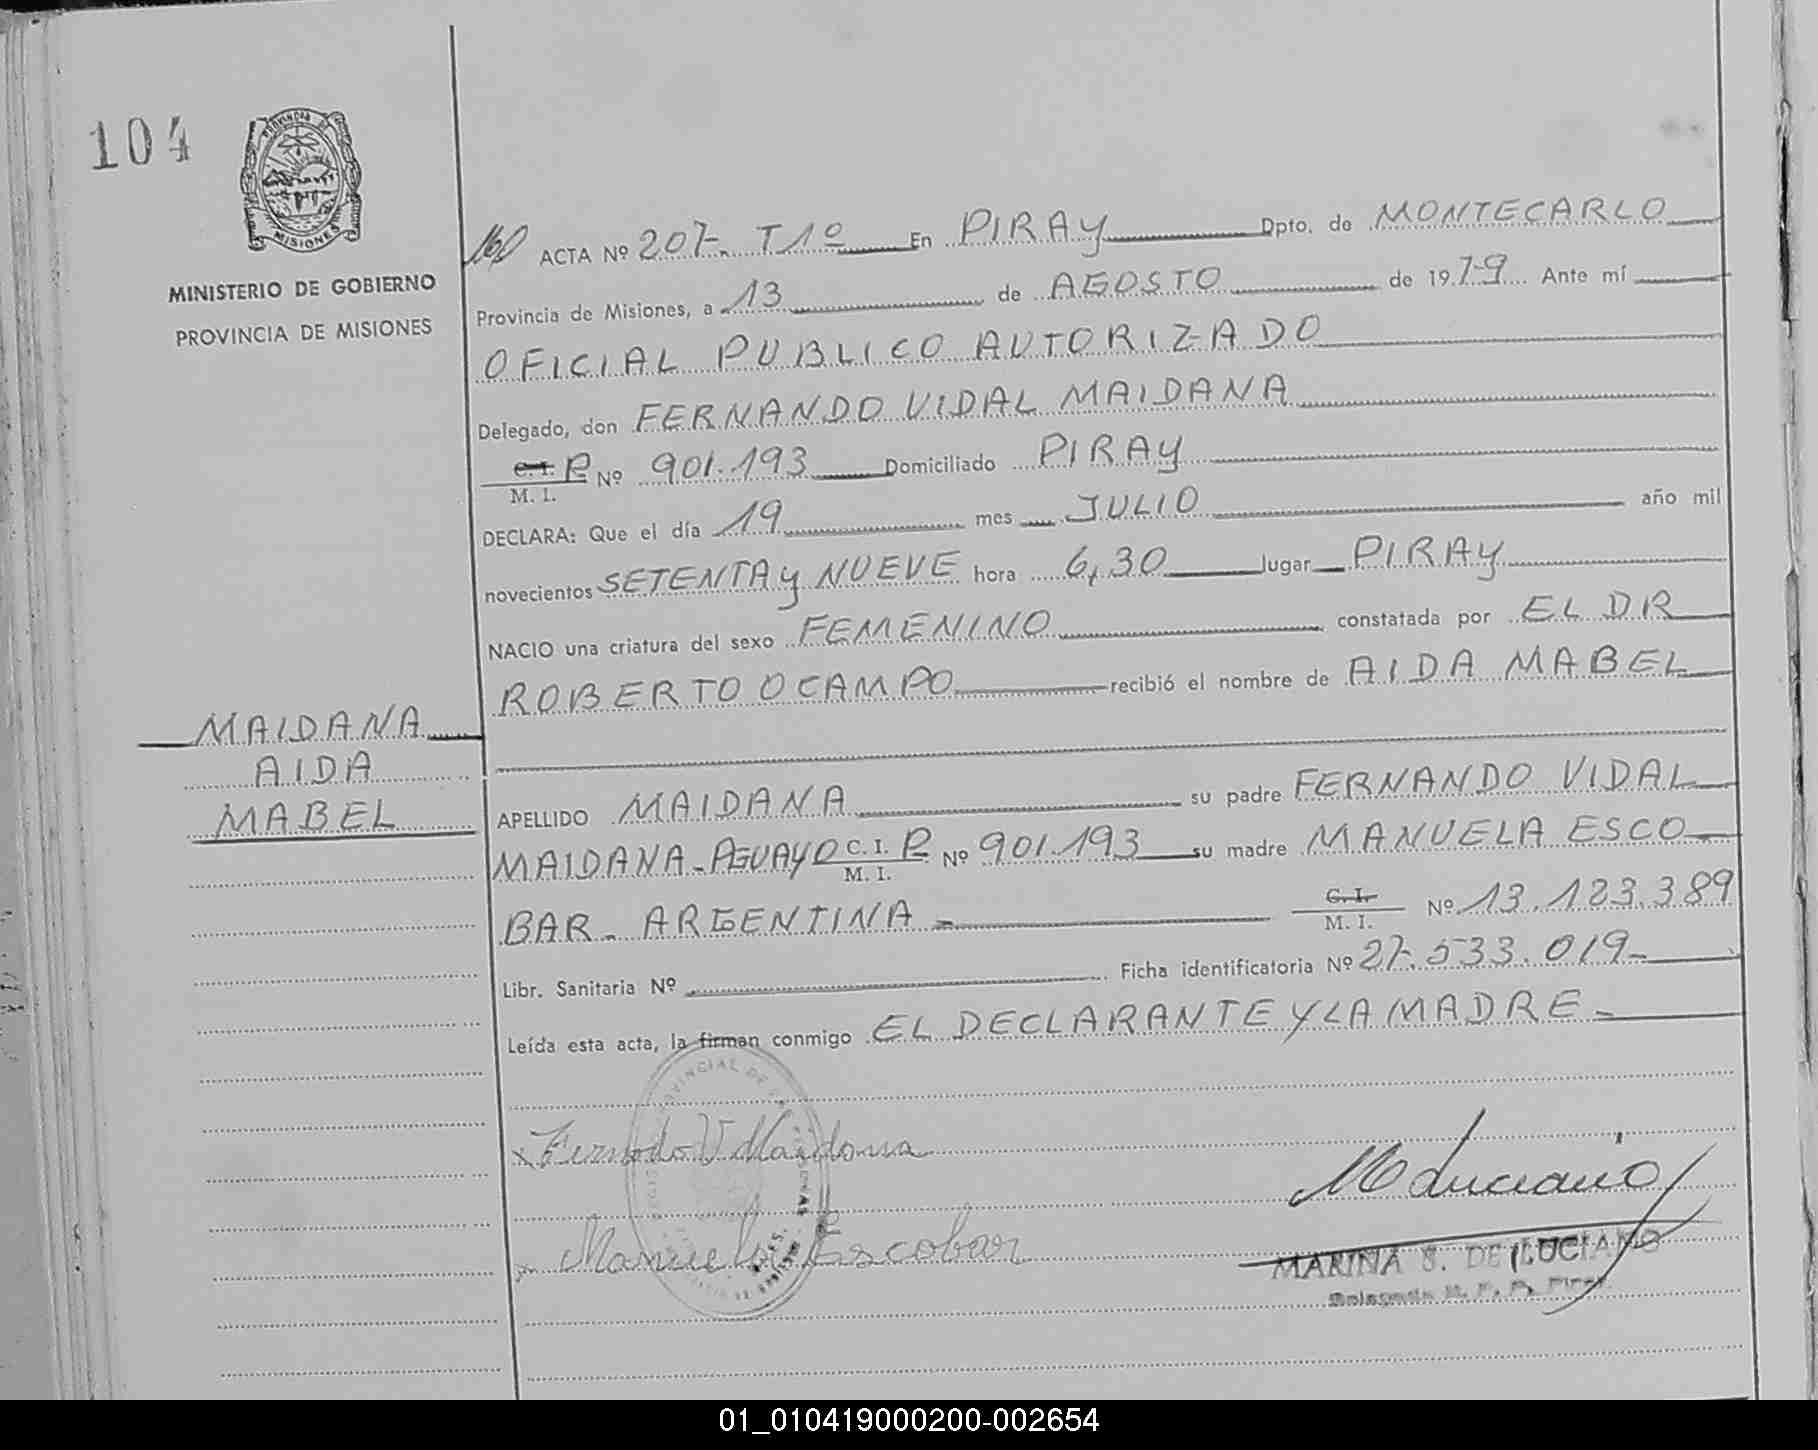 104
PROVINCIA DE
MISIONES
MINISTERIO DE GOBIERNO
PROVINCIA DE MISIONES
160 ACTA Nº 207-. T1º En PIRAY Dpto. de MONTECARLO
Provincia de Misiones, a 13 de AGOSTO de 1979 Ante mí
OFICIAL PUBLICO AUTORIZADO
Delegado, don FERNANDO VIDAL MAIDANA
C. I. P Nº 901.193 Domiciliado PIRAY
M. I.
DECLARA: Que el día 19 mes JULIO año mil
novecientos SETENTA y NUEVE hora 6,30 lugar PIRAY
NACIO una criatura del sexo FEMENINO constatada por EL DR
ROBERTO OCAMPO recibió el nombre de AIDA MABEL
MAIDANA
AIDA
MABEL
APELLIDO MAIDANA su padre FERNANDO VIDAL
MAIDANA-PAGUAYO C. I. P Nº 901.193 su madre MANUELA ESCO
M. I.
BAR-ARGENTINA- C. I. Nº 13.123.389
M. I.
Libr. Sanitaria Nº Ficha identificatoria Nº 27.533.019-
Leída esta acta, la firman conmigo EL DECLARANTE Y LA MADRE-
x Fernando V Maidana
M Luciano
x Manuela Escobar
MARINA S. DE LUCIANO
01_010419000200-002654